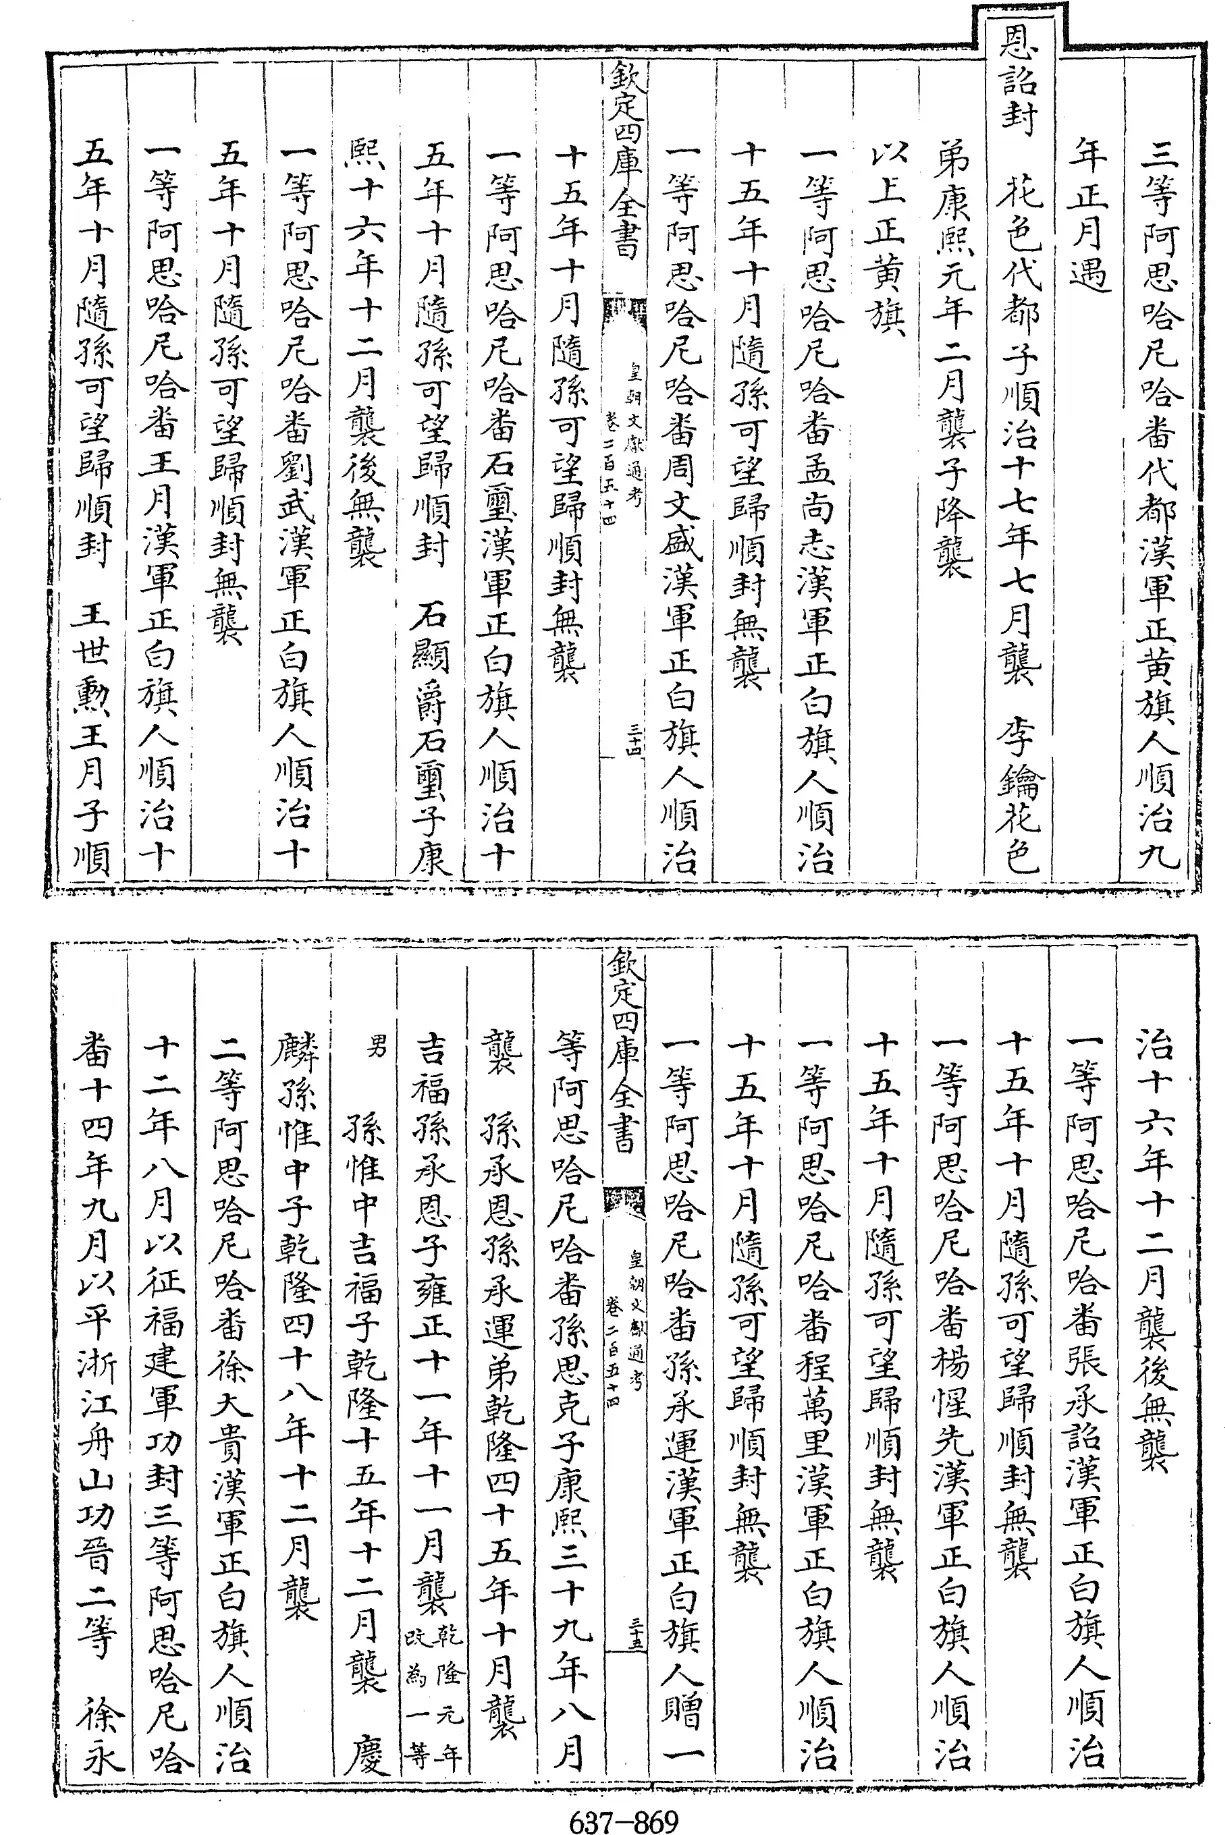 三等阿思哈尼哈番代都漢軍正黄旗人順治九
年正月遇
恩詔封　花色代都子順治十七年七月襲　李鑰花色
弟康熙元年二月襲子降襲
以上正黄旗
一等阿思哈尼哈番孟尚志漢軍正白旗人順治
十五年十月隨孫可望歸順封無襲
一等阿思哈尼哈番周文盛漢軍正白旗人順治
欽定四庫全書　皇朝文獻通考　卷二百五十四　三十四
十五年十月隨孫可望歸順封無襲
一等阿思哈尼哈番石璽漢軍正白旗人順治十
五年十月隨孫可望歸順封　石顯爵石璽子康
熙十六年十二月襲後無襲
一等阿思哈尼哈番劉武漢軍正白旗人順治十
五年十月隨孫可望歸順封無襲
一等阿思哈尼哈番王月漢軍正白旗人順治十
五年十月隨孫可望歸順封　王世勲王月子順
治十六年十二月襲後無襲
一等阿思哈尼哈番張承詔漢軍正白旗人順治
十五年十月隨孫可望歸順封無襲
一等阿思哈尼哈番楊惺先漢軍正白旗人順治
十五年十月隨孫可望歸順封無襲
一等阿思哈尼哈番程萬里漢軍正白旗人順治
十五年十月隨孫可望歸順封無襲
一等阿思哈尼哈番孫承運漢軍正白旗人贈一
欽定四庫全書　皇朝文獻通考　卷二百五十四　三十五
等阿思哈尼哈番孫思克子康熙三十九年八月
襲　孫承恩孫承運弟乾隆四十五年十月襲
吉福孫承恩子雍正十一年十一月襲乾隆元年改為一等
男　孫惟中吉福子乾隆十五年十二月襲　慶
麟孫惟中子乾隆四十八年十二月襲
二等阿思哈尼哈番徐大貴漢軍正白旗人順治
十二年八月以征福建軍功封三等阿思哈尼哈
番十四年九月以平浙江舟山功晉二等　徐永
637-869